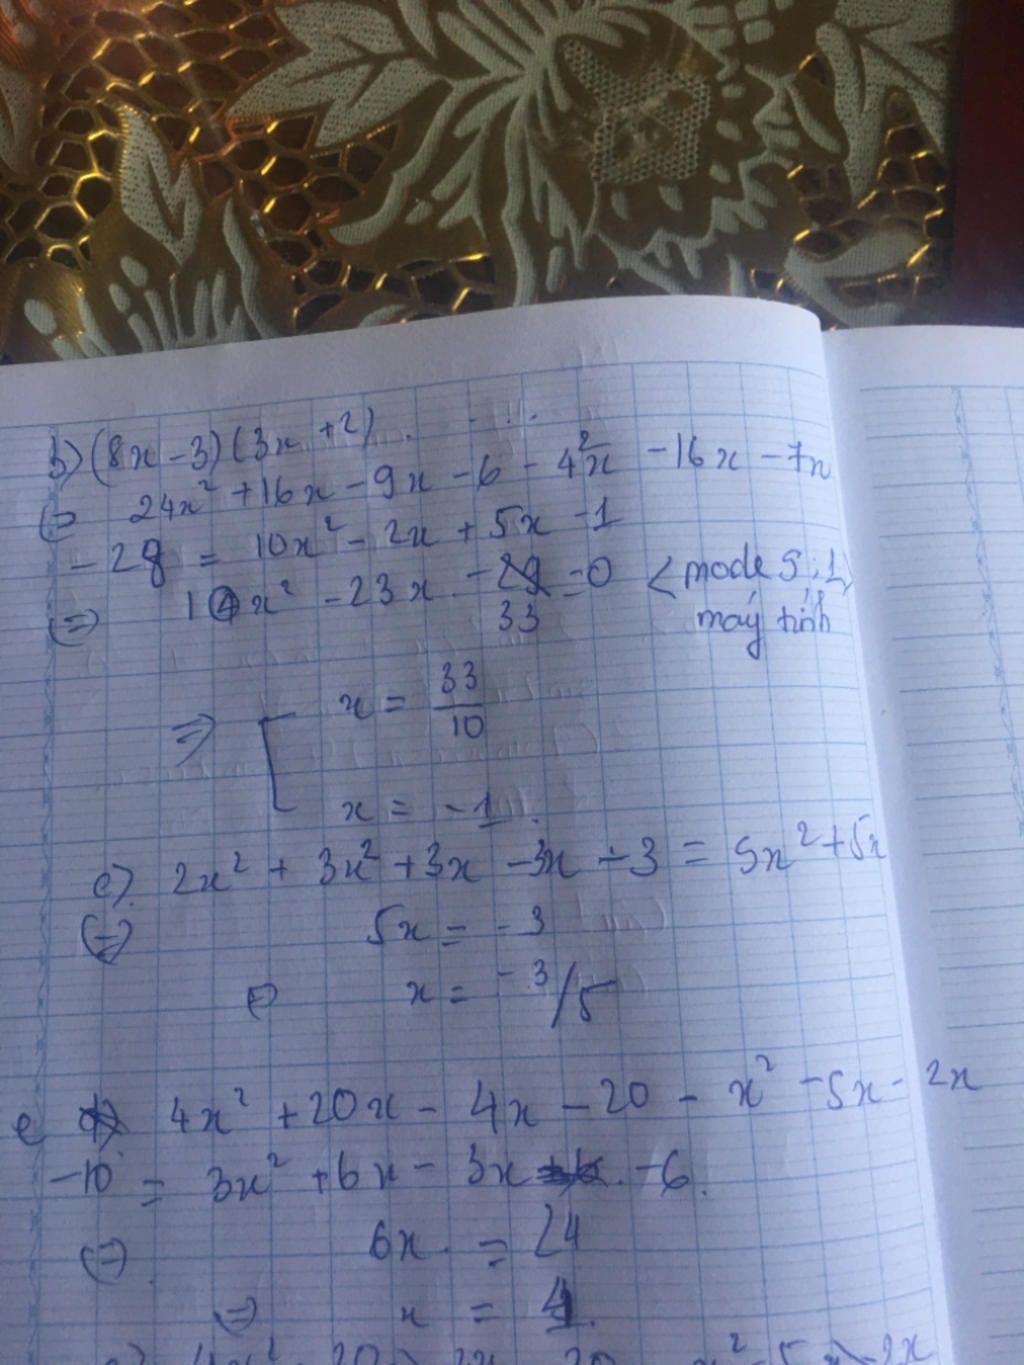 b) (8x - 3)(3x + 2) . - . . .
(=) 24x² + 16x - 9x - 6 - 4x² - 16x - 7x
- 28 = 10x² - 2x + 5x - 1
(=) 10x² - 23x - 33 = 0 < mode 5 ; 1 >
máy tính
=> [ x = 33/10
x = -1.
c) 2x² + 3x² + 3x - 3x - 3 = 5x² + 5x
(=) 5x = - 3
(=) x = -3/5
e 4x² + 20x - 4x - 20 - x² - 5x - 2x
-10 = 3x² + 6x - 3x - 6.
(=) 6x = 24
=> x = 4.